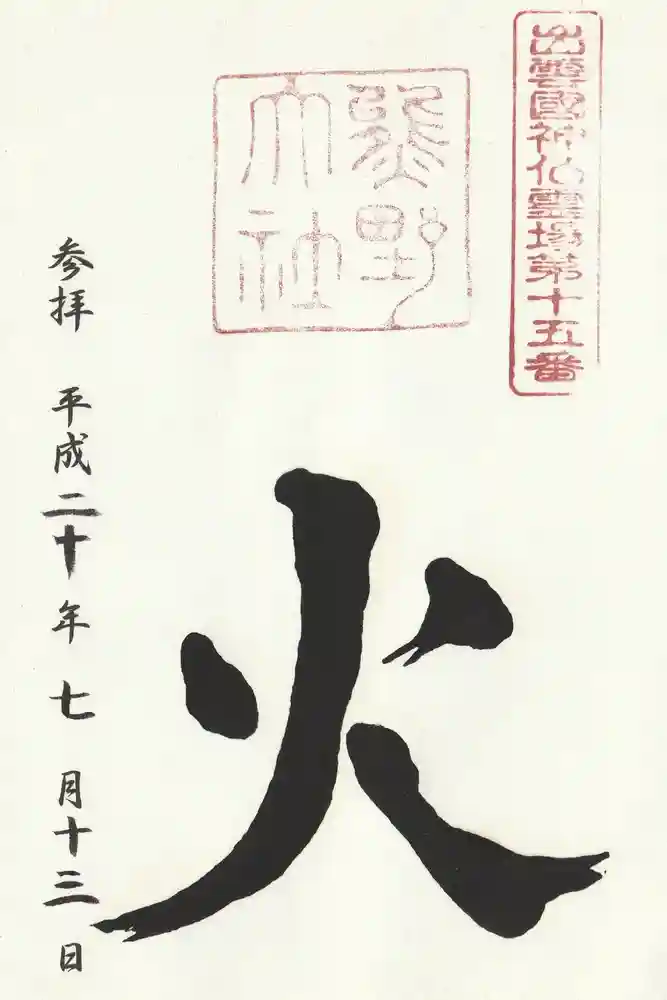 出雲國神仏霊場第十五番
熊野
大社
火
参拝 平成二十年 七 月十三 日